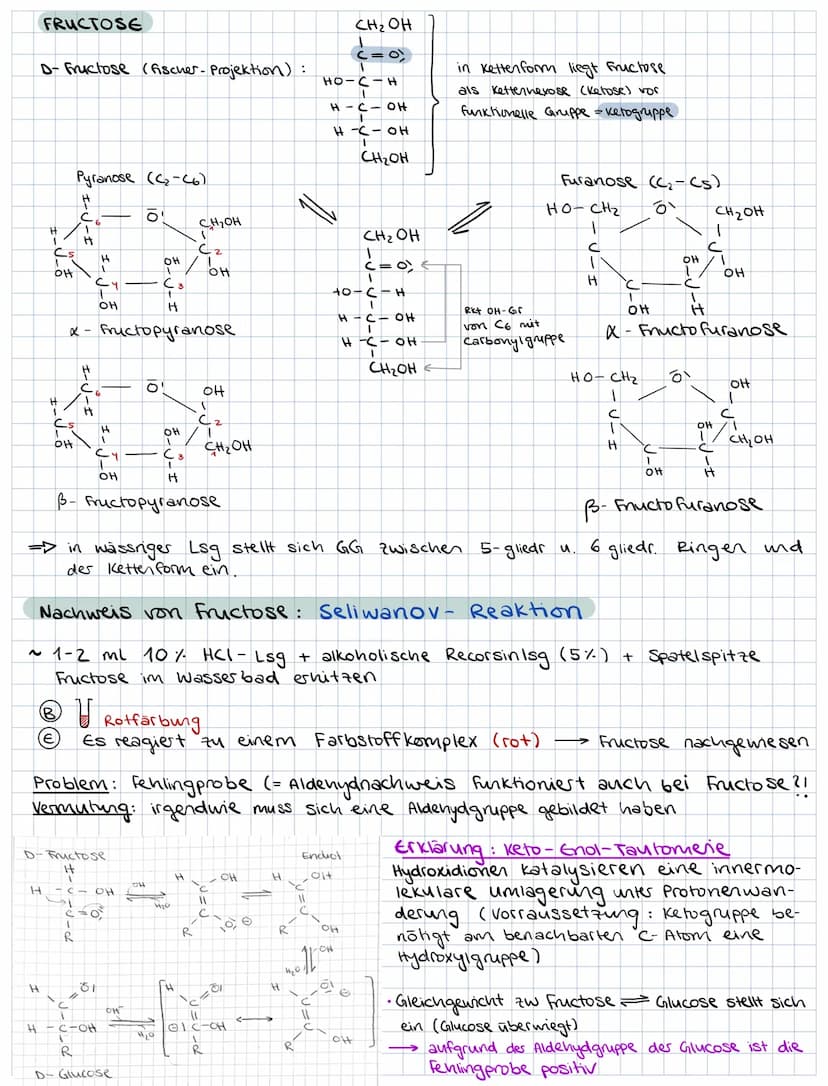 FRUCTOSE
D-Fructose (Fischer-Projektion):
CH₂OH
C=O
HO-C-H
H-C-OH
H-C-OH
CH₂OH
in Kettenform liegt Fructose
als Kettenhexose (Ketose) vor
funktionelle Gruppe = Ketogruppe
Pyranose (C₂-C₆)
H
C₆ — O
H CH₂OH
H C₅ H OH C₂
OH C₄ — C₃ OH
OH H
α - Fructopyranose
CH₂OH
C=O
HO-C-H
H-C-OH
H-C-OH
CH₂OH
Rkt OH-Gr
von C6 mit
Carbonylgruppe
Furanose (C₂-C₅)
HO-CH₂ O CH₂OH
C C
H OH OH
C — C
OH H
α - Fructofuranose
H
C₆ — O OH
H
H C₅ H OH C₂
OH C₄ — C₃ CH₂OH
OH H
β- Fructopyranose
HO-CH₂ O OH
C C
H OH CH₂OH
C — C
OH H
β- Fructofuranose
=> in wässriger Lsg stellt sich GG zwischen 5-gliedr u. 6 gliedr. Ringen und
der Kettenform ein.
Nachweis von Fructose: Seliwanov- Reaktion
~ 1-2 ml 10% HCl-Lsg + alkoholische Recorsinlsg (5%) + Spatelspitze
Fructose im Wasserbad erhitzen
B Rotfärbung
E Es reagiert zu einem Farbstoffkomplex (rot) → Fructose nachgewiesen
Problem: Fehlingprobe (= Aldehydnachweis funktioniert auch bei Fructose?!
Vermutung: irgendwie muss sich eine Aldehydgruppe gebildet haben
D-Fructose
Endiol
H
H-C-OH
C=O
R
OH
H₂O
H OH
C
C
R O ⊖
H OH
C
C
R OH
OH
H₂O
H O
C
H-C-OH
R
D-Glucose
OH⁻
H₂O
H O
C
⊖ C-OH
R
H O ⊖
C
C
R OH
Erklärung: Keto-Enol-Tautomerie
Hydroxidionen katalysieren eine innermo-
lekulare Umlagerung unter Protonenwan-
derung (Vorraussetzung: Ketogruppe be-
nötigt am benachbarten C-Atom eine
Hydroxylgruppe)
· Gleichgewicht zw Fructose ⇌ Glucose stellt sich
ein (Glucose überwiegt)
→ aufgrund der Aldehydgruppe der Glucose ist die
Fehlingprobe positiv